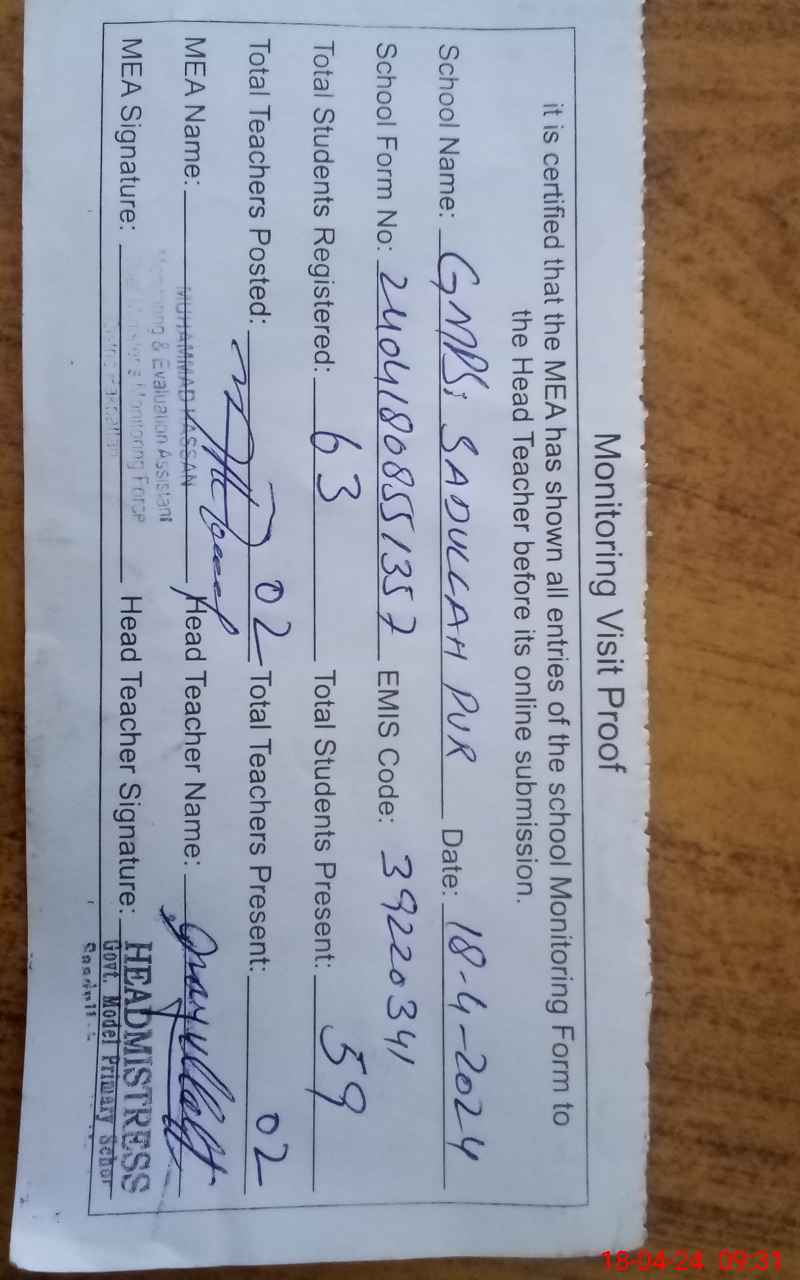 Monitoring Visit Proof
it is certified that the MEA has shown all entries of the school Monitoring Form to
the Head Teacher before its online submission.
School Name: GMPS: SADULLAH PUR Date: 18-4-2024
School Form No: 24041808551357 EMIS Code: 39220341
Total Students Registered: 63 Total Students Present: 59
Total Teachers Posted: 02 Total Teachers Present: 02
MEA Name: MUHAMMAD HASSAN Head Teacher Name:
Monitoring & Evaluation Assistant
Monitoring Force
MEA Signature: Head Teacher Signature: HEADMISTRESS
Govt. Model Primary
18-04-24 09:31